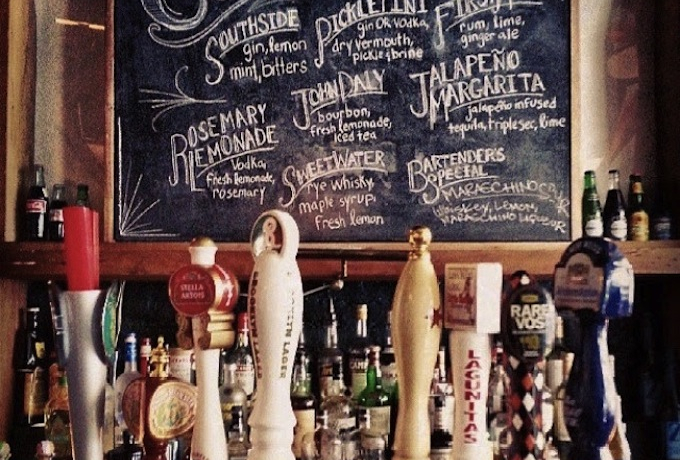 SOUTHSIDE
gin, lemon
mint, bitters
PICKLETINI
gin OR vodka,
dry vermouth,
pickle brine
rum, lime,
ginger ale
ROSEMARY
LEMONADE
vodka,
fresh lemonade,
rosemary
JOHN DALY
bourbon,
fresh lemonade,
iced tea
JALAPEÑO
MARGARITA
jalapeño infused
tequila, triple sec, lime
SWEETWATER
rye whisky,
maple syrup,
fresh lemon
BARTENDER'S
SPECIAL
WHISKEY, LEMON,
MARASCHINO LIQUEUR
STELLA
ARTOIS
BROOKLYN LAGER
LAGUNITAS
RARE
VOS